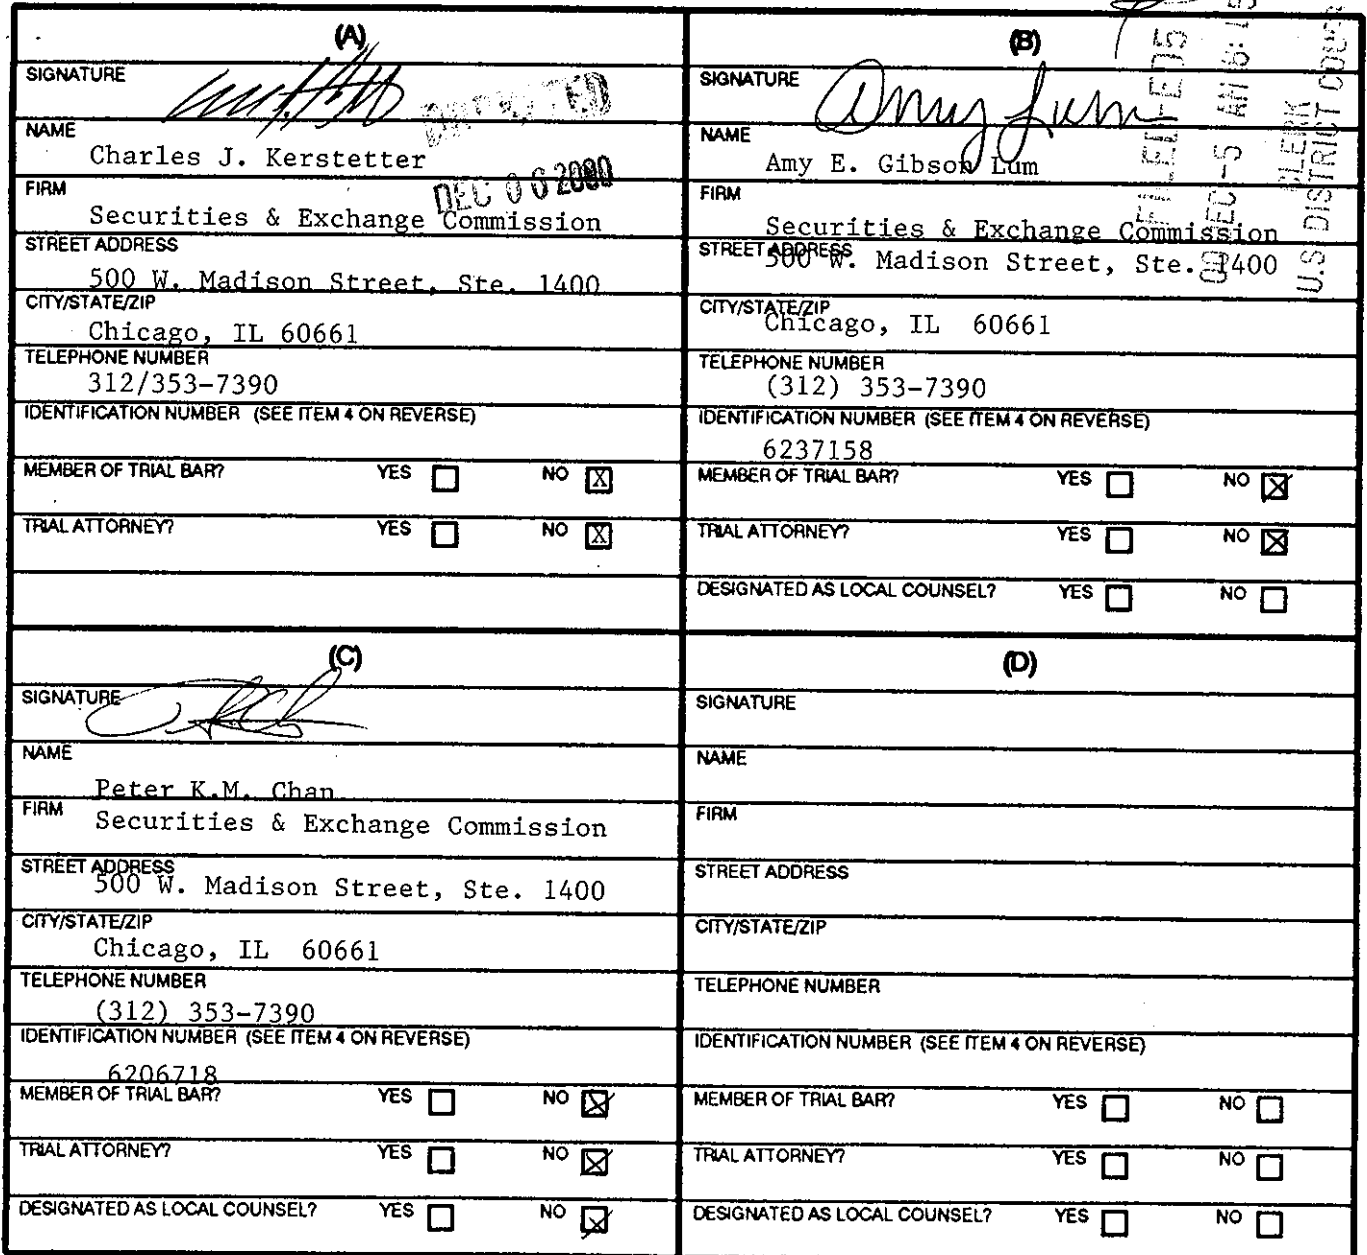 (A)
SIGNATURE
NAME
Charles J. Kerstetter
DOCKETED
DEC 06 2000
FIRM
Securities & Exchange Commission
STREET ADDRESS
500 W. Madison Street, Ste. 1400
CITY/STATE/ZIP
Chicago, IL 60661
TELEPHONE NUMBER
312/353-7390
IDENTIFICATION NUMBER (SEE ITEM 4 ON REVERSE)
MEMBER OF TRIAL BAR? YES NO X
TRIAL ATTORNEY? YES NO X
(B)
SIGNATURE Amy Lum
NAME
Amy E. Gibson Lum
FIRM
Securities & Exchange Commission
STREET ADDRESS
500 W. Madison Street, Ste. 1400
CITY/STATE/ZIP
Chicago, IL 60661
TELEPHONE NUMBER
(312) 353-7390
IDENTIFICATION NUMBER (SEE ITEM 4 ON REVERSE)
6237158
MEMBER OF TRIAL BAR? YES NO X
TRIAL ATTORNEY? YES NO X
DESIGNATED AS LOCAL COUNSEL? YES NO
CLERK
U.S DISTRICT COURT
(C)
SIGNATURE
NAME
Peter K.M. Chan
FIRM
Securities & Exchange Commission
STREET ADDRESS
500 W. Madison Street, Ste. 1400
CITY/STATE/ZIP
Chicago, IL 60661
TELEPHONE NUMBER
(312) 353-7390
IDENTIFICATION NUMBER (SEE ITEM 4 ON REVERSE)
6206718
MEMBER OF TRIAL BAR? YES NO X
TRIAL ATTORNEY? YES NO X
DESIGNATED AS LOCAL COUNSEL? YES NO X
(D)
SIGNATURE
NAME
FIRM
STREET ADDRESS
CITY/STATE/ZIP
TELEPHONE NUMBER
IDENTIFICATION NUMBER (SEE ITEM 4 ON REVERSE)
MEMBER OF TRIAL BAR? YES NO
TRIAL ATTORNEY? YES NO
DESIGNATED AS LOCAL COUNSEL? YES NO